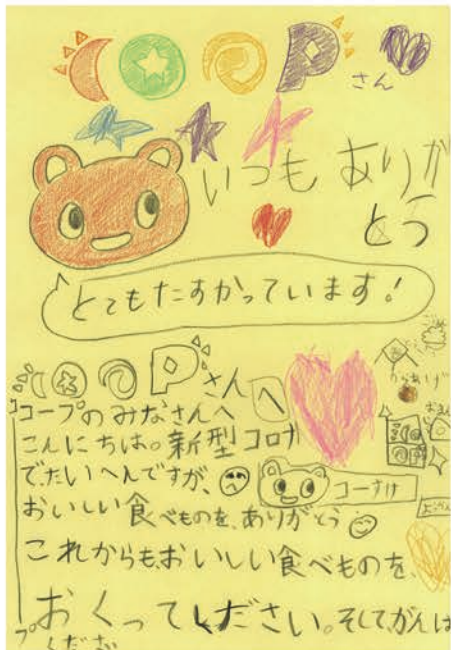 COOP
さん
いつも ありが
とう
とてもたすかっています！
COOPさんへ
コープのみなさんへ
こんにちは。新型コロナ
でたいへんですが、
コーすけ
おいしい食べものを、ありがとう
これからも、おいしい食べものを、
おくってください。そして、がんば
ください
からあげ